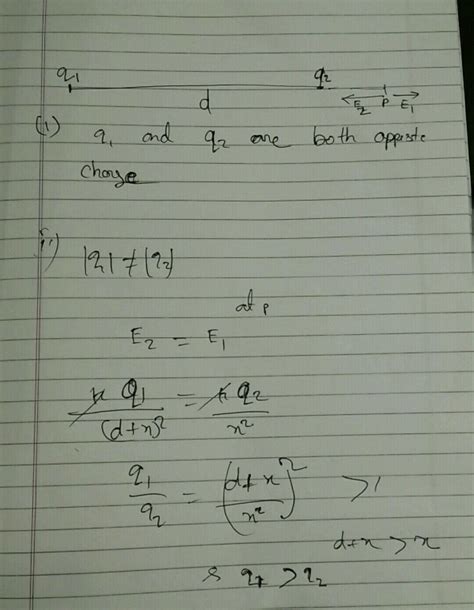 q₁ q₂
d E₂ P E₁
(i) q₁ and q₂ are both opposite
charge
ii) |q₁| ≠ |q₂|
at P
E₂ = E₁
k q₁/(d+x)² = k q₂/x²
q₁/q₂ = (d+x/x²)² >1
d+x > x
q₁ > q₂